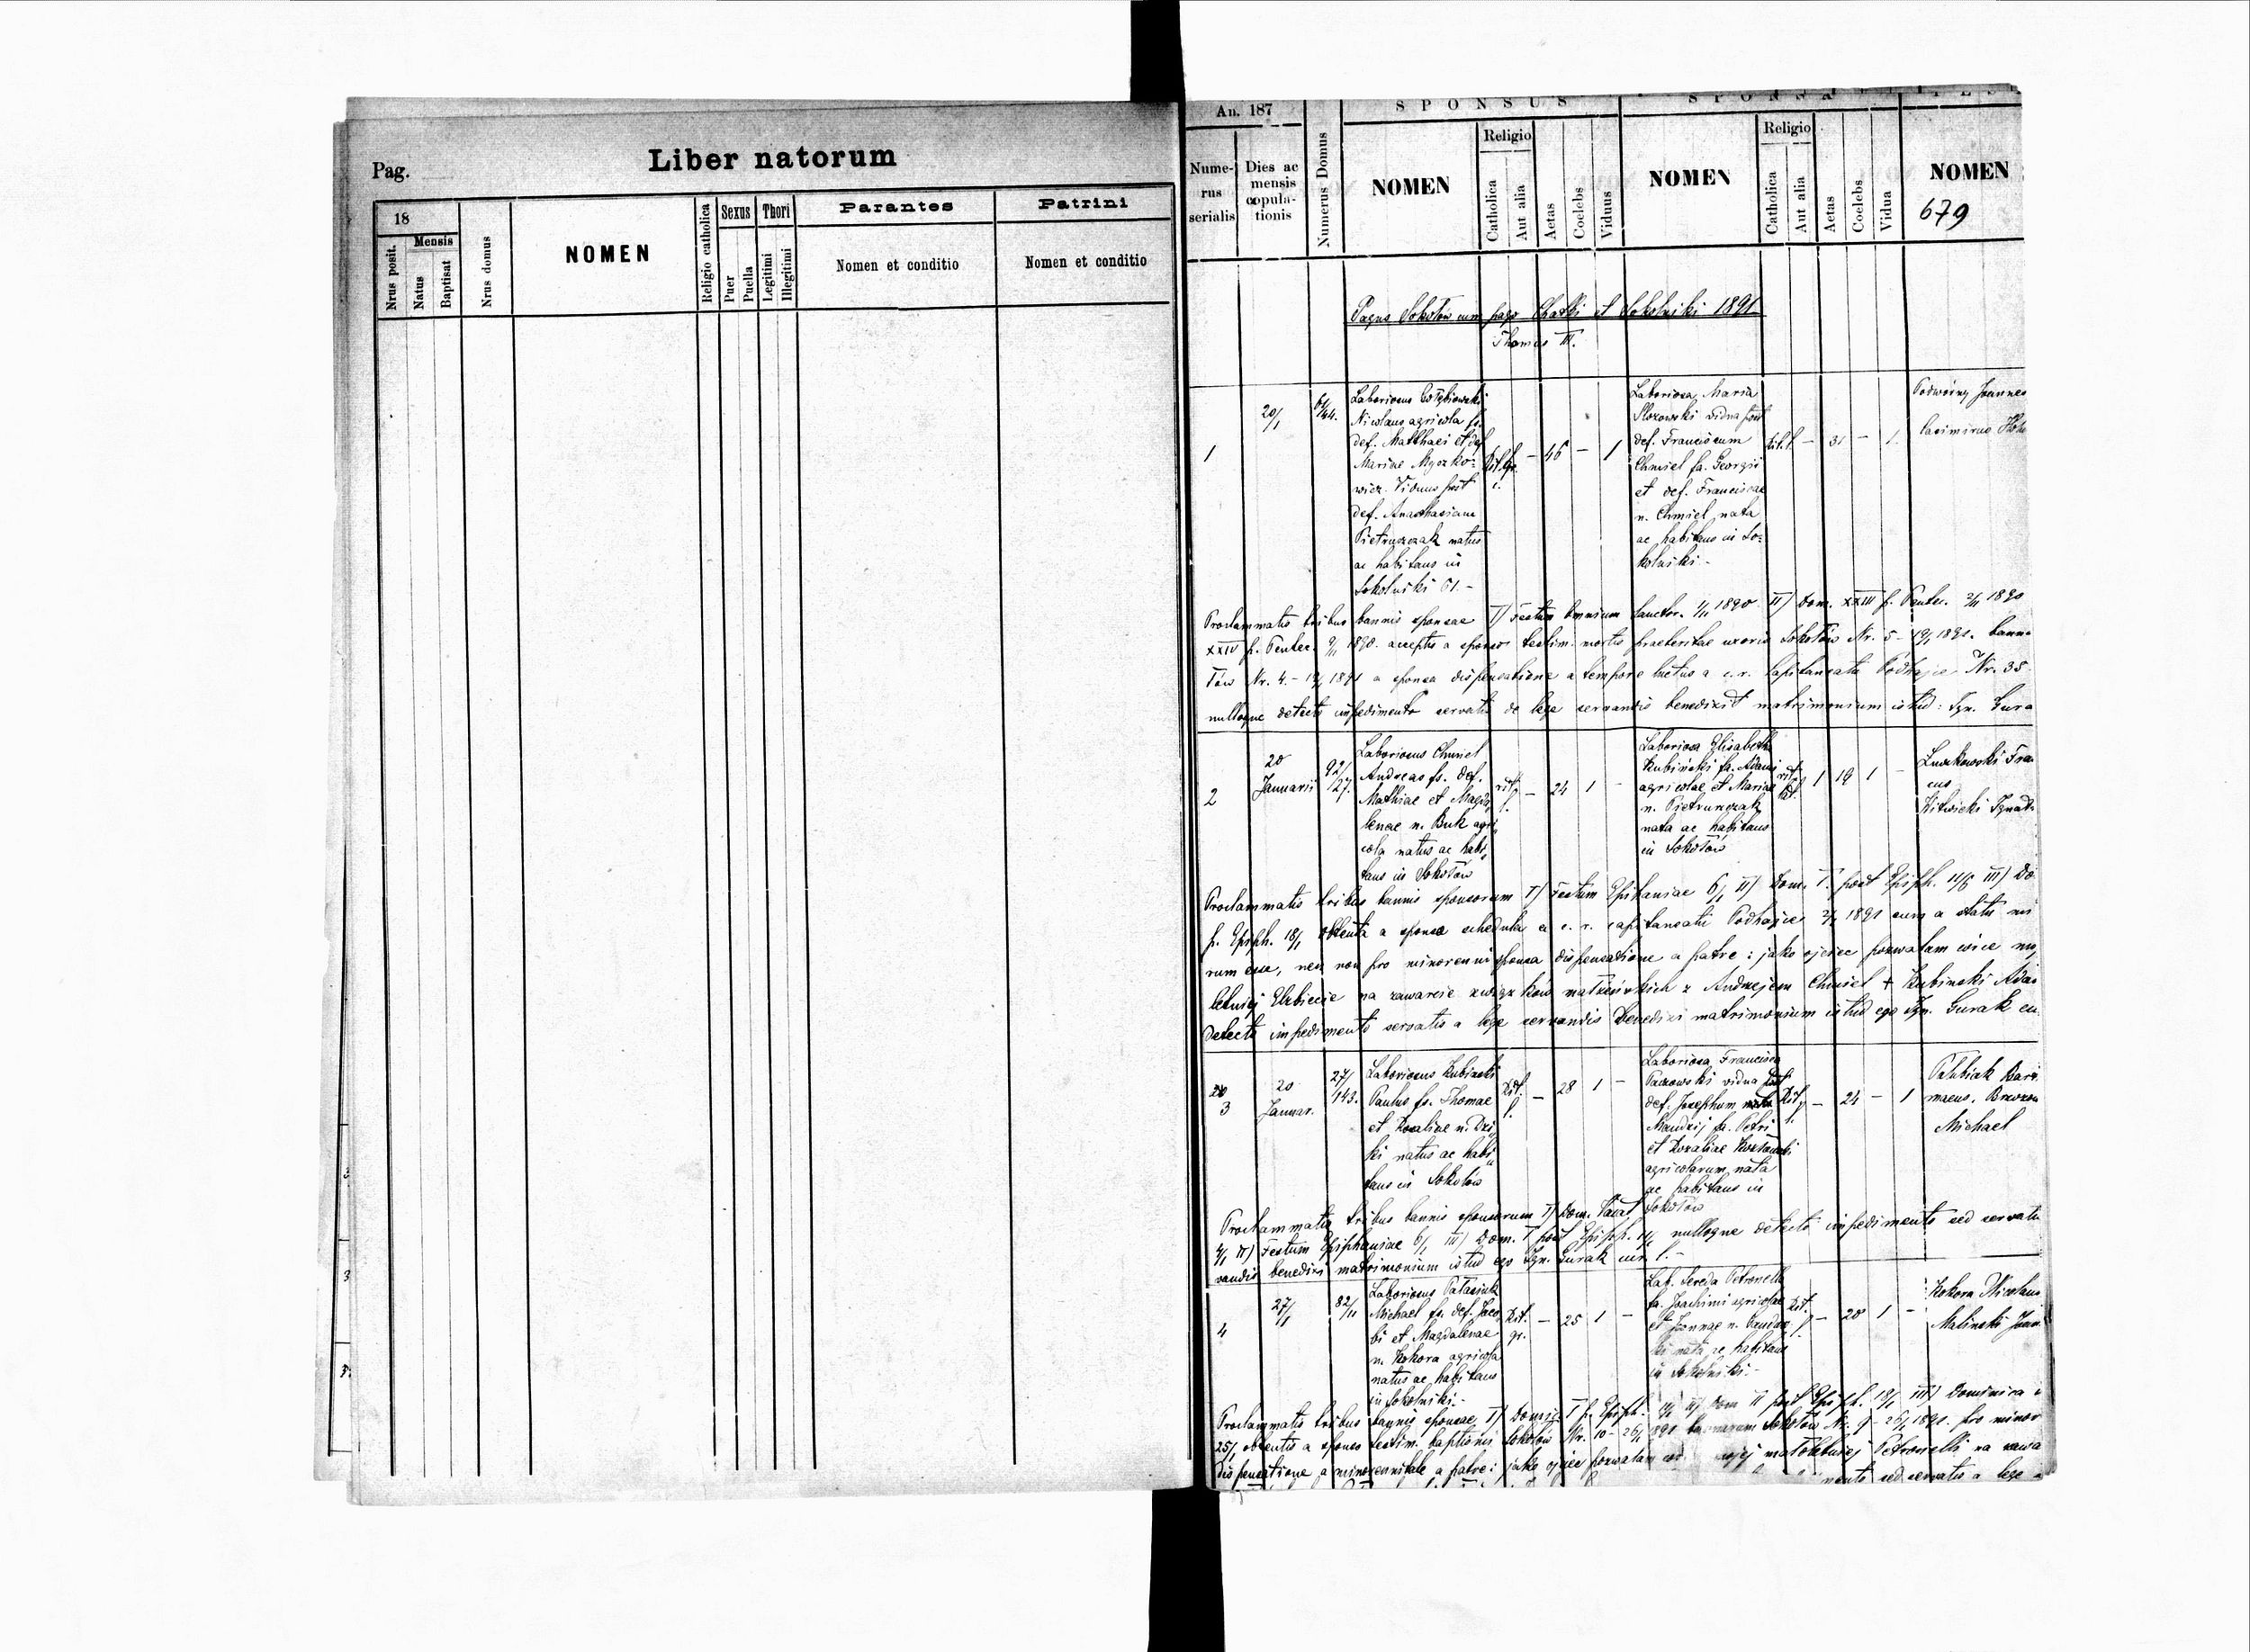 Pag.
Liber natorum
18
Mensis
Nrus posit.
Natus
Baptisat
Nrus domus
NOMEN
Religio catholica
Sexus
Puer
Puella
Thori
Legitimi
Illegitimi
Parantes
Nomen et conditio
Patrini
Nomen et conditio
An. 187
Nume-
rus
serialis
Dies ac
mensis
copula-
tionis
Numerus Domus
SPONSUS
NOMEN
Religio
Catholica
Aut alia
Aetas
Coelebs
Viduus
SPONSA
NOMEN
Religio
Catholica
Aut alia
Aetas
Coelebs
Vidua
NOMEN
679
Pagus Sokołów cum pago Chatki et Sokolniki 1891
Thomus III.
1
20/1
61/44.
Laboriosus
Nicolaus agricola fs.
def. Matthaei et def
Mariae
Viduus post
def. Anasthasiam
Pietruszczak natus
ac habitans in
Sokolniki 61.-
- 46 - 1
Laboriosa Maria
vidua post
def. Franciscum
Chmiel fa. Georgii
et def. Franciscae
n. Chmiel nata
ac habitans in So-
kolniki.-
- 31 - 1.
Podwórny Joannes
Casimirus
Proclammatis tribus bannis sponsae I/ Festum Omnium Sanctor. 1/11 1890 II/ Dom. XXIII p. Pentec. 2/11 1890
XXIV p. Pentec. 9/11 1890. acceptis a sponso testim. mortis praeteritae uxoris Sokołów Nr. 5 - 19/1 1891.
łów Nr. 4.- 19/1 1891 a sponsa dispensatione a tempore luctus a c. r. Capitaneatu Podhajce Nr. 35
nulloque detecto impedimento servatis de lege servandis benedixit matrimonium istud: Ign. Gura
2
20
Januarii
92/27.
Laboriosus Chmiel
Andreas fs. def.
Mathiae et Magda
lenae n. Buk agri
cola natus ac habi
tans in Sokołów
rit. l.
- 24 1 -
Laboriosa Elisabeth
Kubiński fa. Adami
agricolae et Mariae
n. Pietruszczak
nata ac habitans
in Sokołów
1 19 1 -
cus
Proclammatis tribus bannis sponsorum I/ Festum Epifaniae 6/1 II/ Dom. I. post Epiph. 11/1 III/ Do
p. Epiph. 18/1 obtenta a sponso schedula a c. r. capitaneatu Podhajce 1891 eum a statu
rum esse, nec non pro minorenni sponsa dispensatione a patre: jako ojciec pozwalam córce
letniej Elżbiecie na zawarcie związków małżeńskich z Andrzejem Chmiel + Kubinski Adam
detecto impedimento servatis a lege servandis benedixi matrimonium istud ego Ign. Gurak
3
20
Januar.
27/143.
Laboriosus Kubinski
Paulus fs. Thomae
et Rosaliae n. Dzi
ki natus ac habi
tans in Sokołów
Rit. l.
- 28 1 -
Laboriosa Francisca
vidua post
def. Josephum
fa. Petri
et Rozaliae
agricolarum nata
ac habitans in
Sokołów
Rit. l.
- 24 - 1
maeus.
Michael
Proclammatis tribus bannis sponsorum I/ Dom. Vacat
4/1 II/ Festum Epiphaniae 6/1 III/ Dom. I post Epiph. 11/1 nulloque detecto impedimento sed servatis
vandis benedixi matrimonium istud ego Ign. Gurak
4
27/1
82/11
Laboriosus
Michael fs. def. Jaco
bi et Magdalenae
n. Kokora agricola
natus ac habitans
in Sokolniki.-
Rit. gr.
- 25 1 -
Lab. Sereda Petronella
fa. Joachimi agricolae
et Joannae n.
nata ac habitans
in Sokolniki.-
- 20 1 -
Kokora Nicolaus
Malinski
Proclammatis tribus bannis sponsae I/ Domin. I p. Epiph. 11/1 II/ Dom II post Epiph. 18/1 III/ Dominica
25/1 obtentis a sponso testim. baptismi Sokołów Nr. 10 - 26/1 1891 Sokołów Nr. 9 - 26/1 1891. pro minor
dispensatione a minorennitate a patre: jako ojciec pozwalam małoletniej Petronelli na zawa
sed servatis a lege